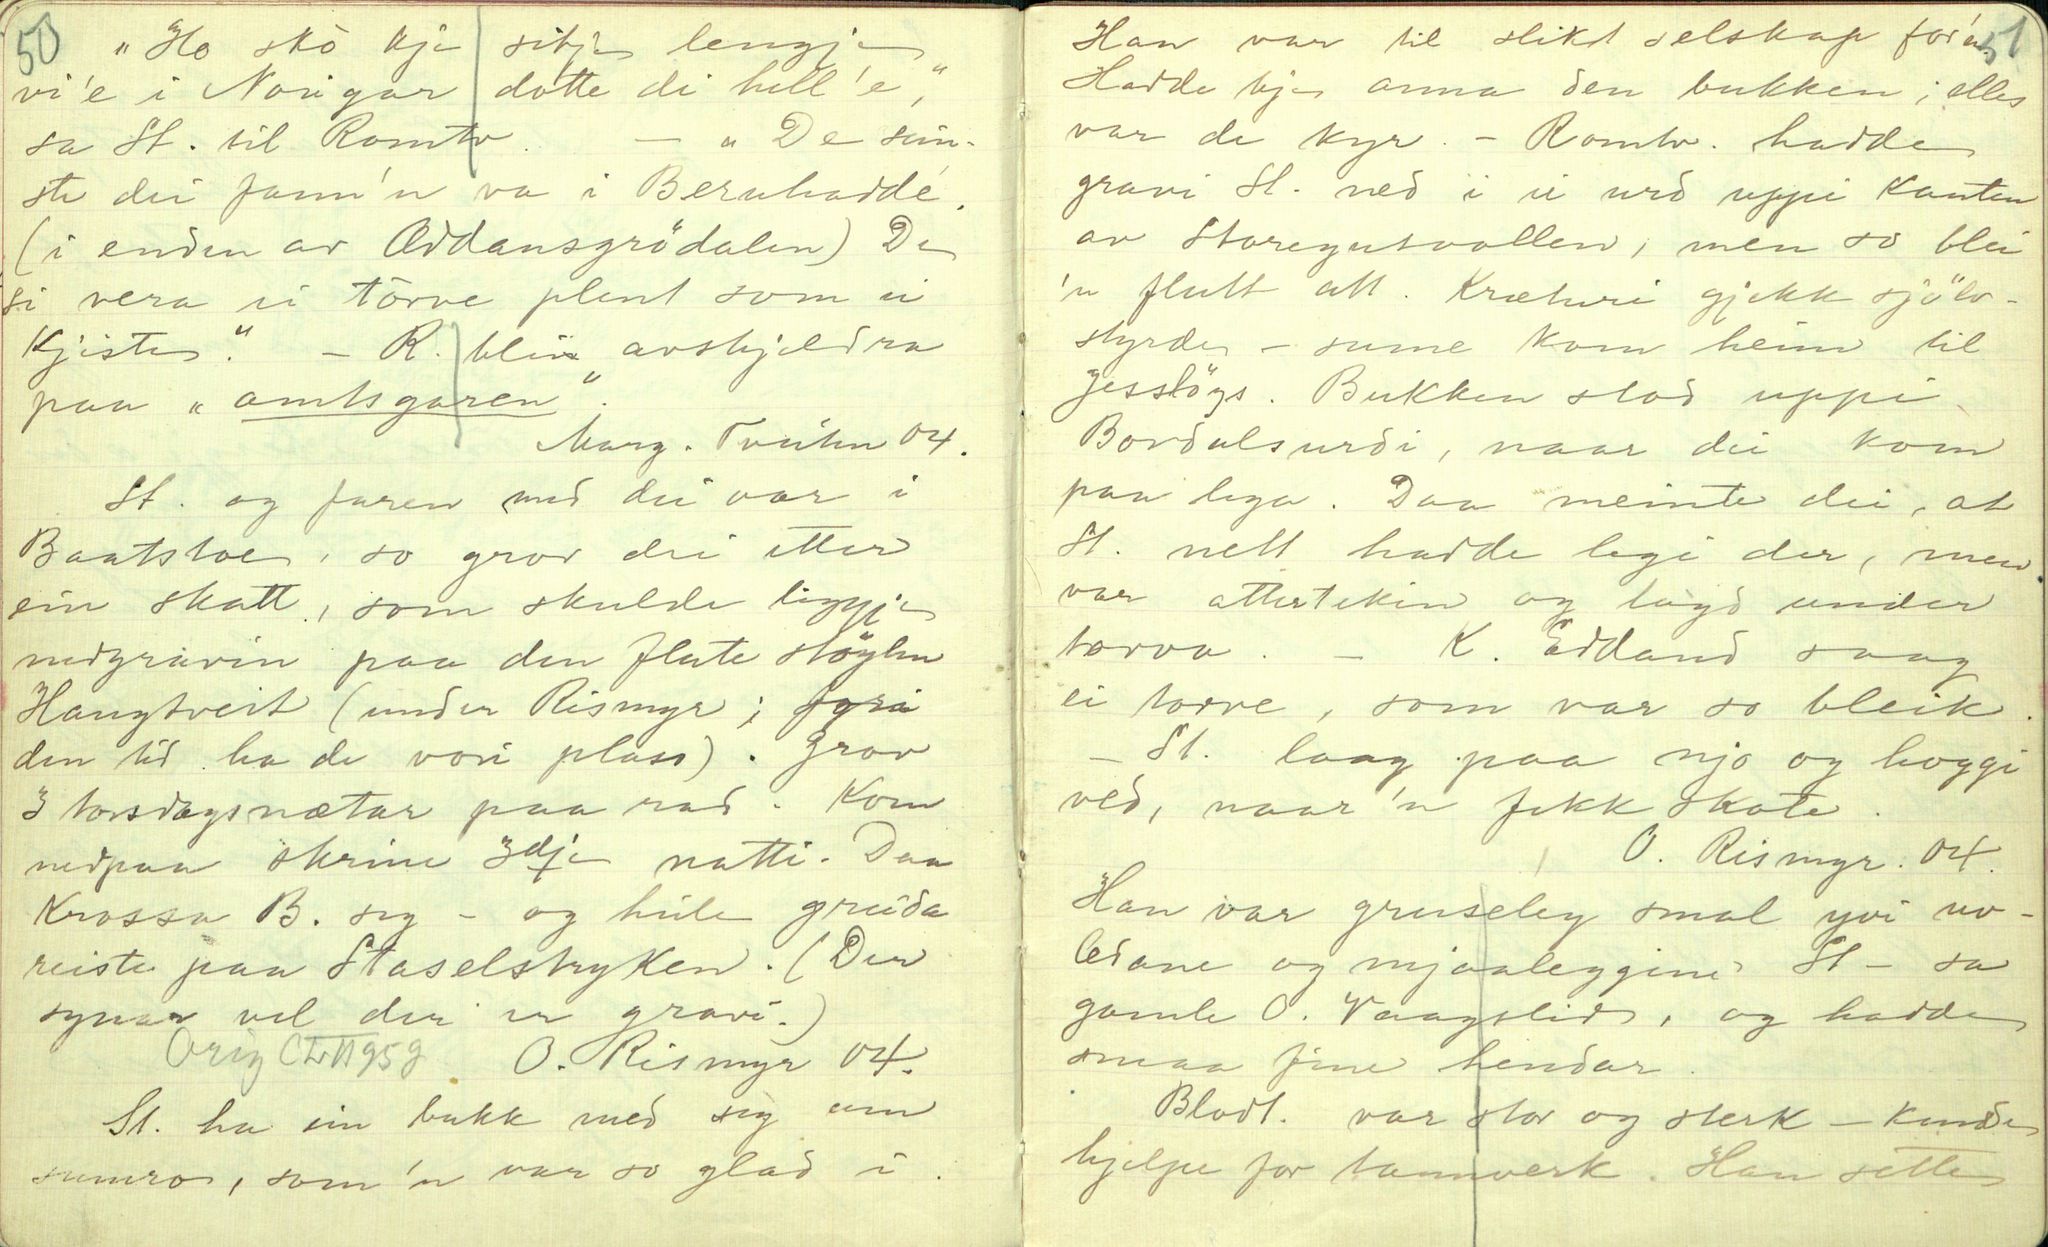 50
"Ho sko kje sitje lengje
vi'e i Norigar dotte di hell'e,"
sa St. til Romtv. — "De sein-
ste dei fann'n va i Bernhaddé.
(i enden av Øddansgrödalen) De
si vera ei törve plent som ei
Kjiste." — R. blei avskjeldra
paa "amtsgaren".
Marg. Tveiten 04.
St. og faren med dei var i
Baatstoe, so grov dei etter
ein skatt, som skulde liggje
nedgravin paa den flate støylen
Haugtveit (under Rismyr; fyri
den tid ha de vori plass). Grov
3 torsdagsnætar paa rad. Kom
nedpaa skrine 3dje natti. Daa
Krossa B. seg – og heile greida
reiste paa Staselstryken. (Der
synar vel dei er gravi.)
Orig O. Rismyr 04.
St. ha ein bukk med seg um
sumro, som'n var so glad i.
51
Han var til slikt selskap for'n.
Hadde kje anna den bukken; elles
var de kyr. – Romtv. hadde
gravi St. ned i ei urd uppi Kanten
av Storegutvollen, men so blei
'n flutt att. Kræturi gjekk sjölv-
styrde – sume kom heim til
Jesslögs. Bukken stod uppi
Bordalsurdi, naar dei kom
paa lega. Daa meinte dei, at
St. nett hadde legi der, men
var attertekin og lagd under
torva. – K. Eddand saag
ei torve, som var so bleik.
– St. laag paa njo og hoggi
ved, naar'n fekk skote.
O. Rismyr. 04.
Han var gruseleg smal yvi uv-
ledane og mjaaleggine St – sa
gamle O. Vaagslid, og hadde
smaa fine hendar.
Blodt. var stor og sterk – kunde
hjelpe for tannverk. Han sette